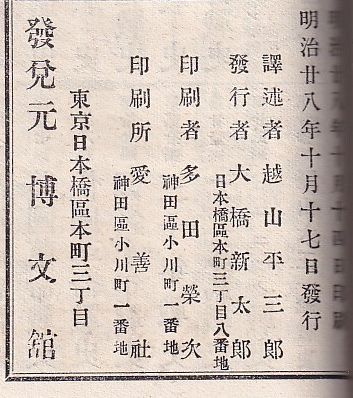 明治廿八年十月十四日印刷
明治廿八年十月十七日發行
譯述者 越山平三郎
發行者 大橋新太郎
日本橋區本町三丁目八番地
印刷者 多田榮次
神田區小川町一番地
印刷所 愛善社
神田區小川町一番地
東京日本橋區本町三丁目
發兌元 博文舘